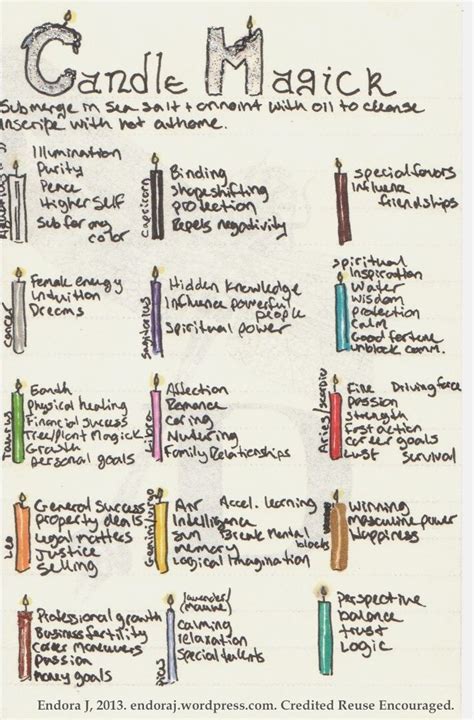 Candle Magick
Submerge in sea salt + annoint with oil to cleanse
Inscribe with hot athome.
Illumination
Purity
Peace
Higher Self
Sub for any
color
Capricorn
Binding
Shapeshifting
protection
Repels negativity
special favors
Influence
friendships
Cancer
Female energy
Intuition
Dreams
Sagitarius
Hidden Knowledge
Influence powerful
people
Spiritual power
spiritual
Inspiration
Water
wisdom
protection
calm
Good fortune
unblock comm.
Taurus
Earth
Physical healing
Financial success
Tree/Plant Magick
Growth
personal goals
Libra
Affection
Romance
Caring
Nuturing
Family Relationships
Aries/Scorpio
Fire Driving force
Passion
Strength
Fast action
career goals
Lust Survival
Leo
General success
property deals
Legal matters
Justice
Selling
Gemini/Virgo
Air Accel. learning
Intelligence
Sun Break Mental
memory blocks
Logical Imagination
Winning
Masculine power
Happiness
Professional growth
Business fertility
Career maneuvers
Passion
Money goals
lavender/
(mauve)
calming
relaxation
Special talents
perspective
balance
trust
Logic
Endora J, 2013. endoraj.wordpress.com. Credited Reuse Encouraged.